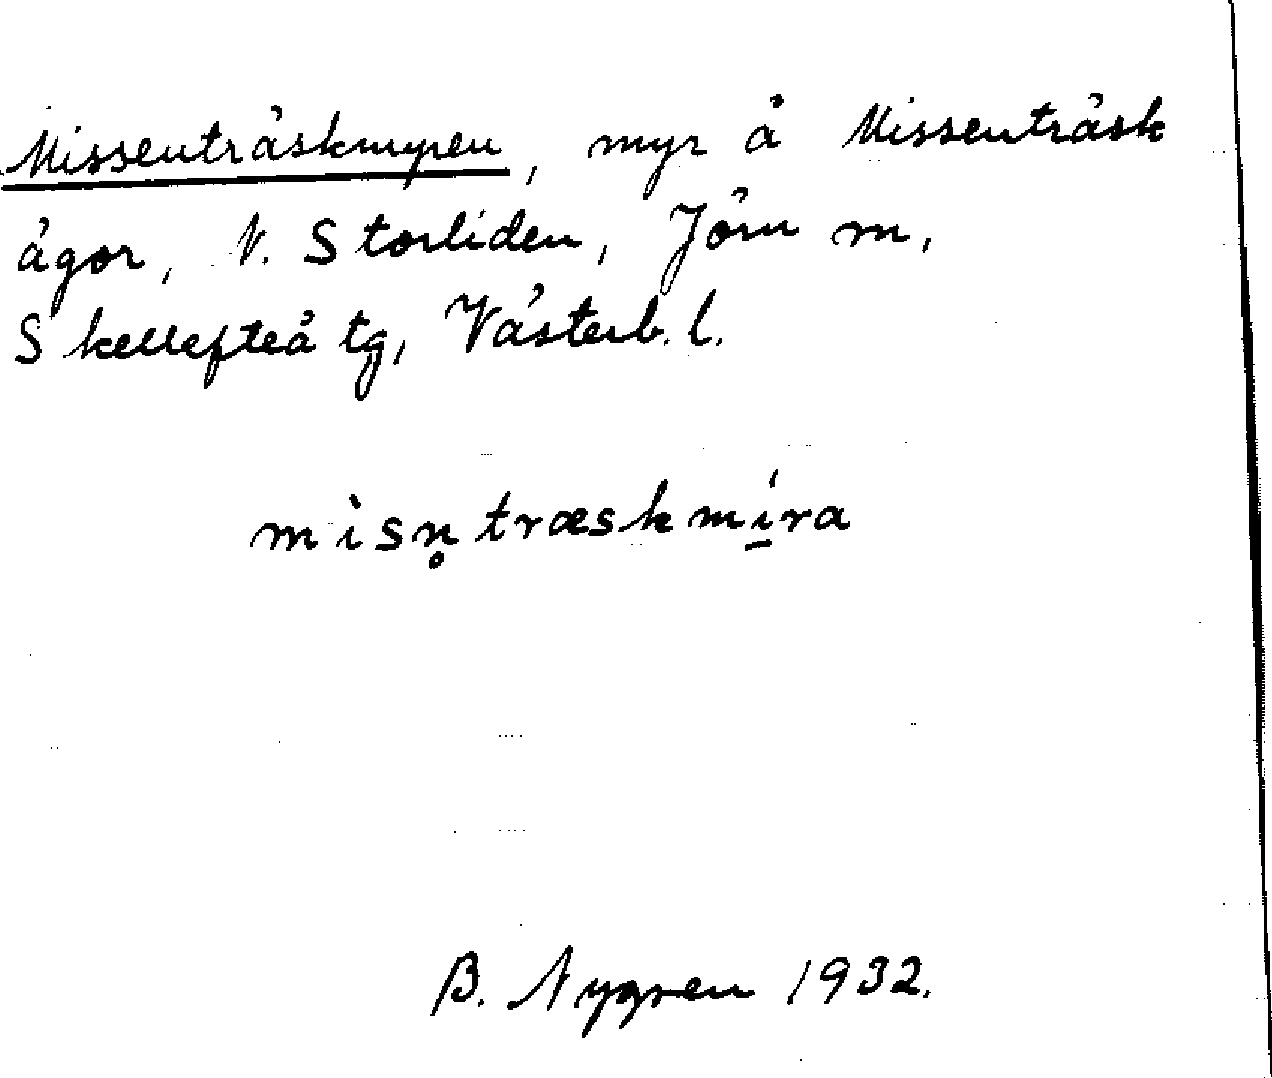 Missenträskmyren, myr å Missenträsk
ägor, N. Storliden, Jörn m,
Skellefteå tg, Västerb. l.
mìsn̥træskmí̱ra
B. Nygren 1932.